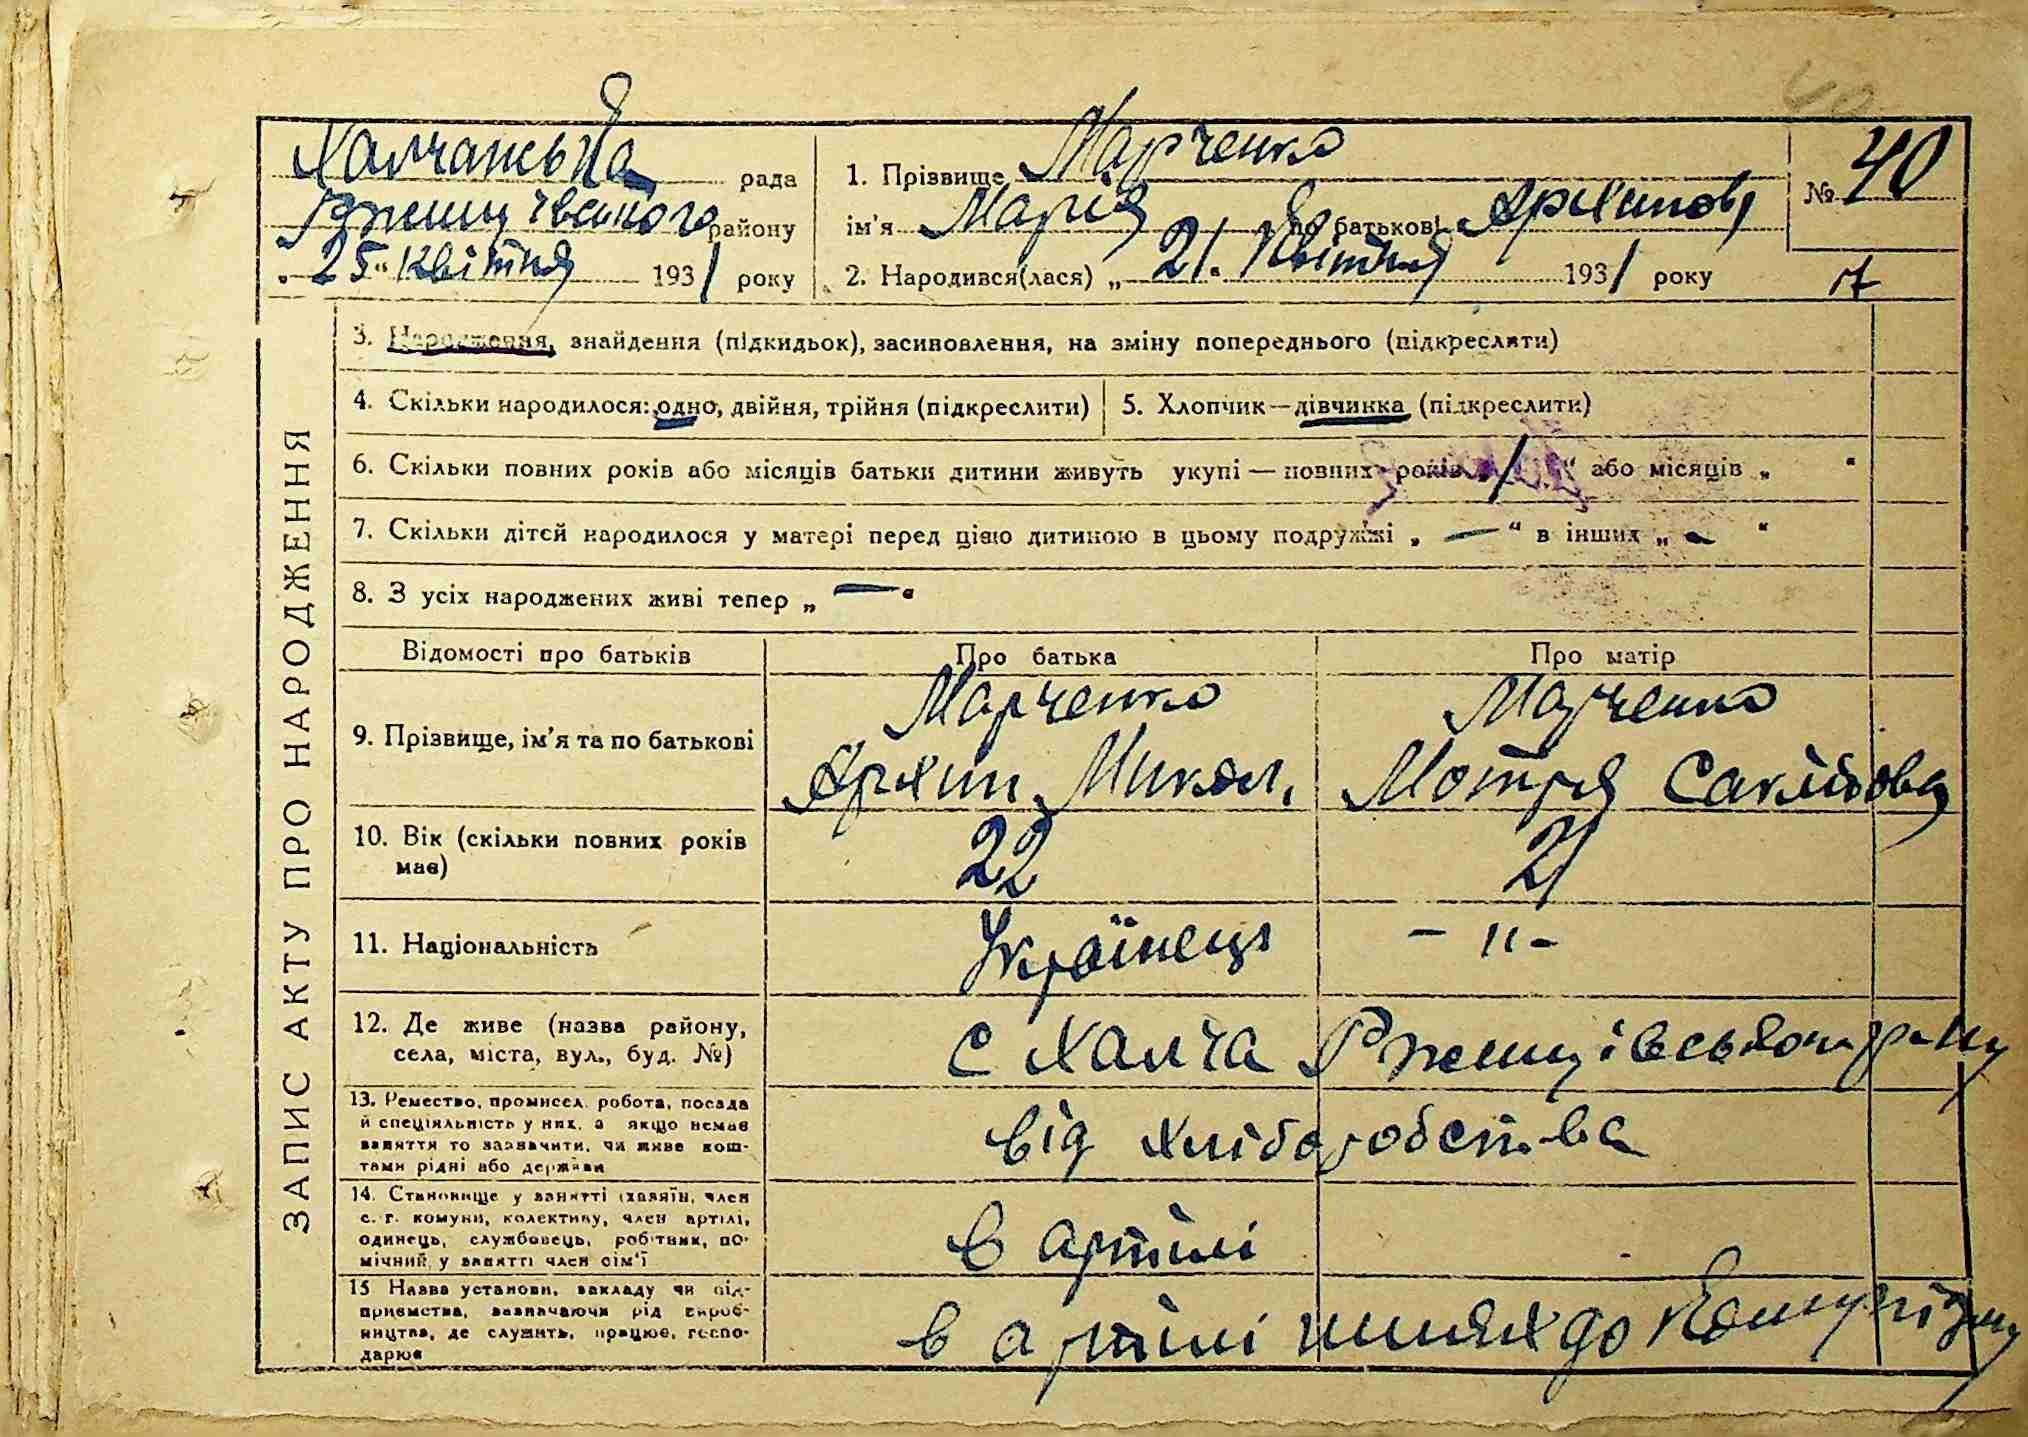 40
Халчанська рада
Ржищівського району
„25“ квітня 1931 року
1. Прізвище Марченко
ім'я Марія по батькові Архипов
2. Народився(лася) „21“ квітня 1931 року
№ 40
17
ЗАПИС АКТУ ПРО НАРОДЖЕННЯ
3. Народження, знайдення (підкидьок), засиновлення, на зміну попереднього (підкреслити)
4. Скільки народилося: одно, двійня, трійня (підкреслити)
5. Хлопчик—дівчинка (підкреслити)
6. Скільки повних років або місяців батьки дитини живуть укупі — повних років „1“ або місяців „ “
7. Скільки дітей народилося у матері перед цією дитиною в цьому подружжі „—“ в інших „—“
8. З усіх народжених живі тепер „—“
Відомості про батьків
Про батька
Про матір
9. Прізвище, ім'я та по батькові
Марченко
Архип Микол.
Марченко
Мотря
10. Вік (скільки повних років
має)
22
21
11. Національність
Українець
– 11 –
12. Де живе (назва району,
села, міста, вул., буд. №)
с Халча Ржищівського р-ну
13. Ремество, промисел, робота, посада
й спеціяльність у них, а якщо немає
заняття то зазначити, чи живе кош-
тами рідні або держави
від хліборобства
14. Становище у занятті (хазяїн, член
с. г. комуни, колективу, член артілі,
одинець, службовець, робітник, по-
мічний у занятті член сім'ї
в артілі
15 Назва установи, закладу чи під-
приємства, зазначаючи рід вироб-
ництва, де служить, працює, госпо-
дарює
в артілі шлях до